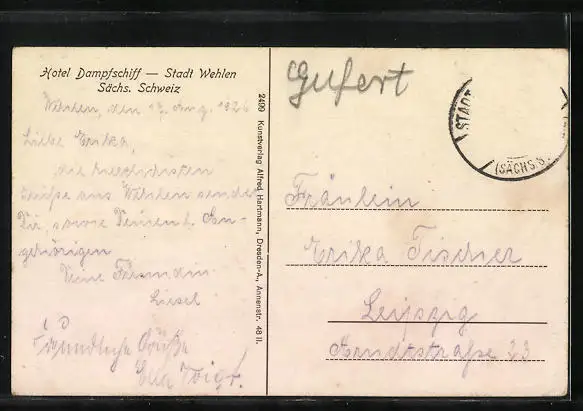 Hotel Dampfschiff — Stadt Wehlen
Sächs. Schweiz
Wehlen, den 17. Aug. 1926
Liebe Erika,
die herzlichsten
Grüße aus Wehlen sendet
Dir, sowie Deinen l. An-
gehörigen
Deine Freundin
Liesel
Freundliche Grüße
Ella Voigt.
2499 Kunstverlag Alfred Hartmann, Dresden-A., Annenstr. 48 II.
Gufert
STADT
(SÄCHS.S.
Fräulein
Erika Tischer
Leipzig
Arndtstraße 23